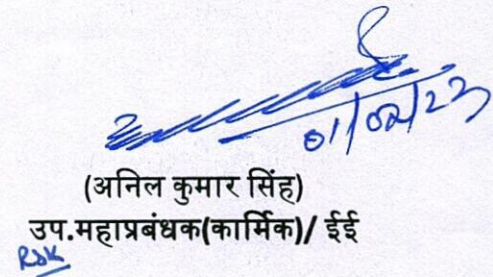 01/02/23
(अनिल कुमार सिंह)
उप.महाप्रबंधक(कार्मिक)/ ईई
RDK